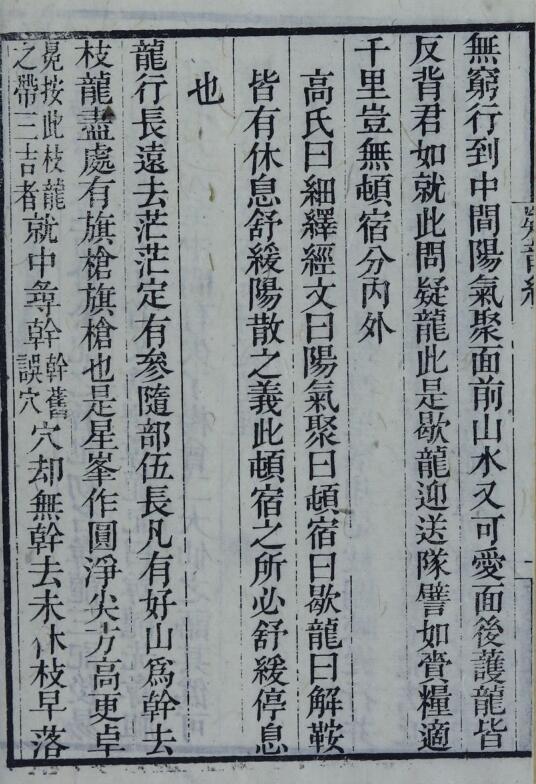 無窮行到中間陽氣聚面前山水又可愛面後護龍皆
反背君如就此問疑龍此是歇龍迎送隊譬如賫糧適
千里豈無頓宿分內外
高氏曰細繹經文曰陽氣聚曰頓宿曰歇龍曰解鞍
皆有休息舒緩陽散之義此頓宿之所必舒緩停息
也
龍行長遠去茫茫定有參隨部伍長凡有好山爲幹去
枝龍盡處有旗槍旗槍也是星峯作圓淨尖方高更卓
晃按此枝龍之帶三吉者就中尋幹幹舊誤穴穴却無幹去未休枝早落